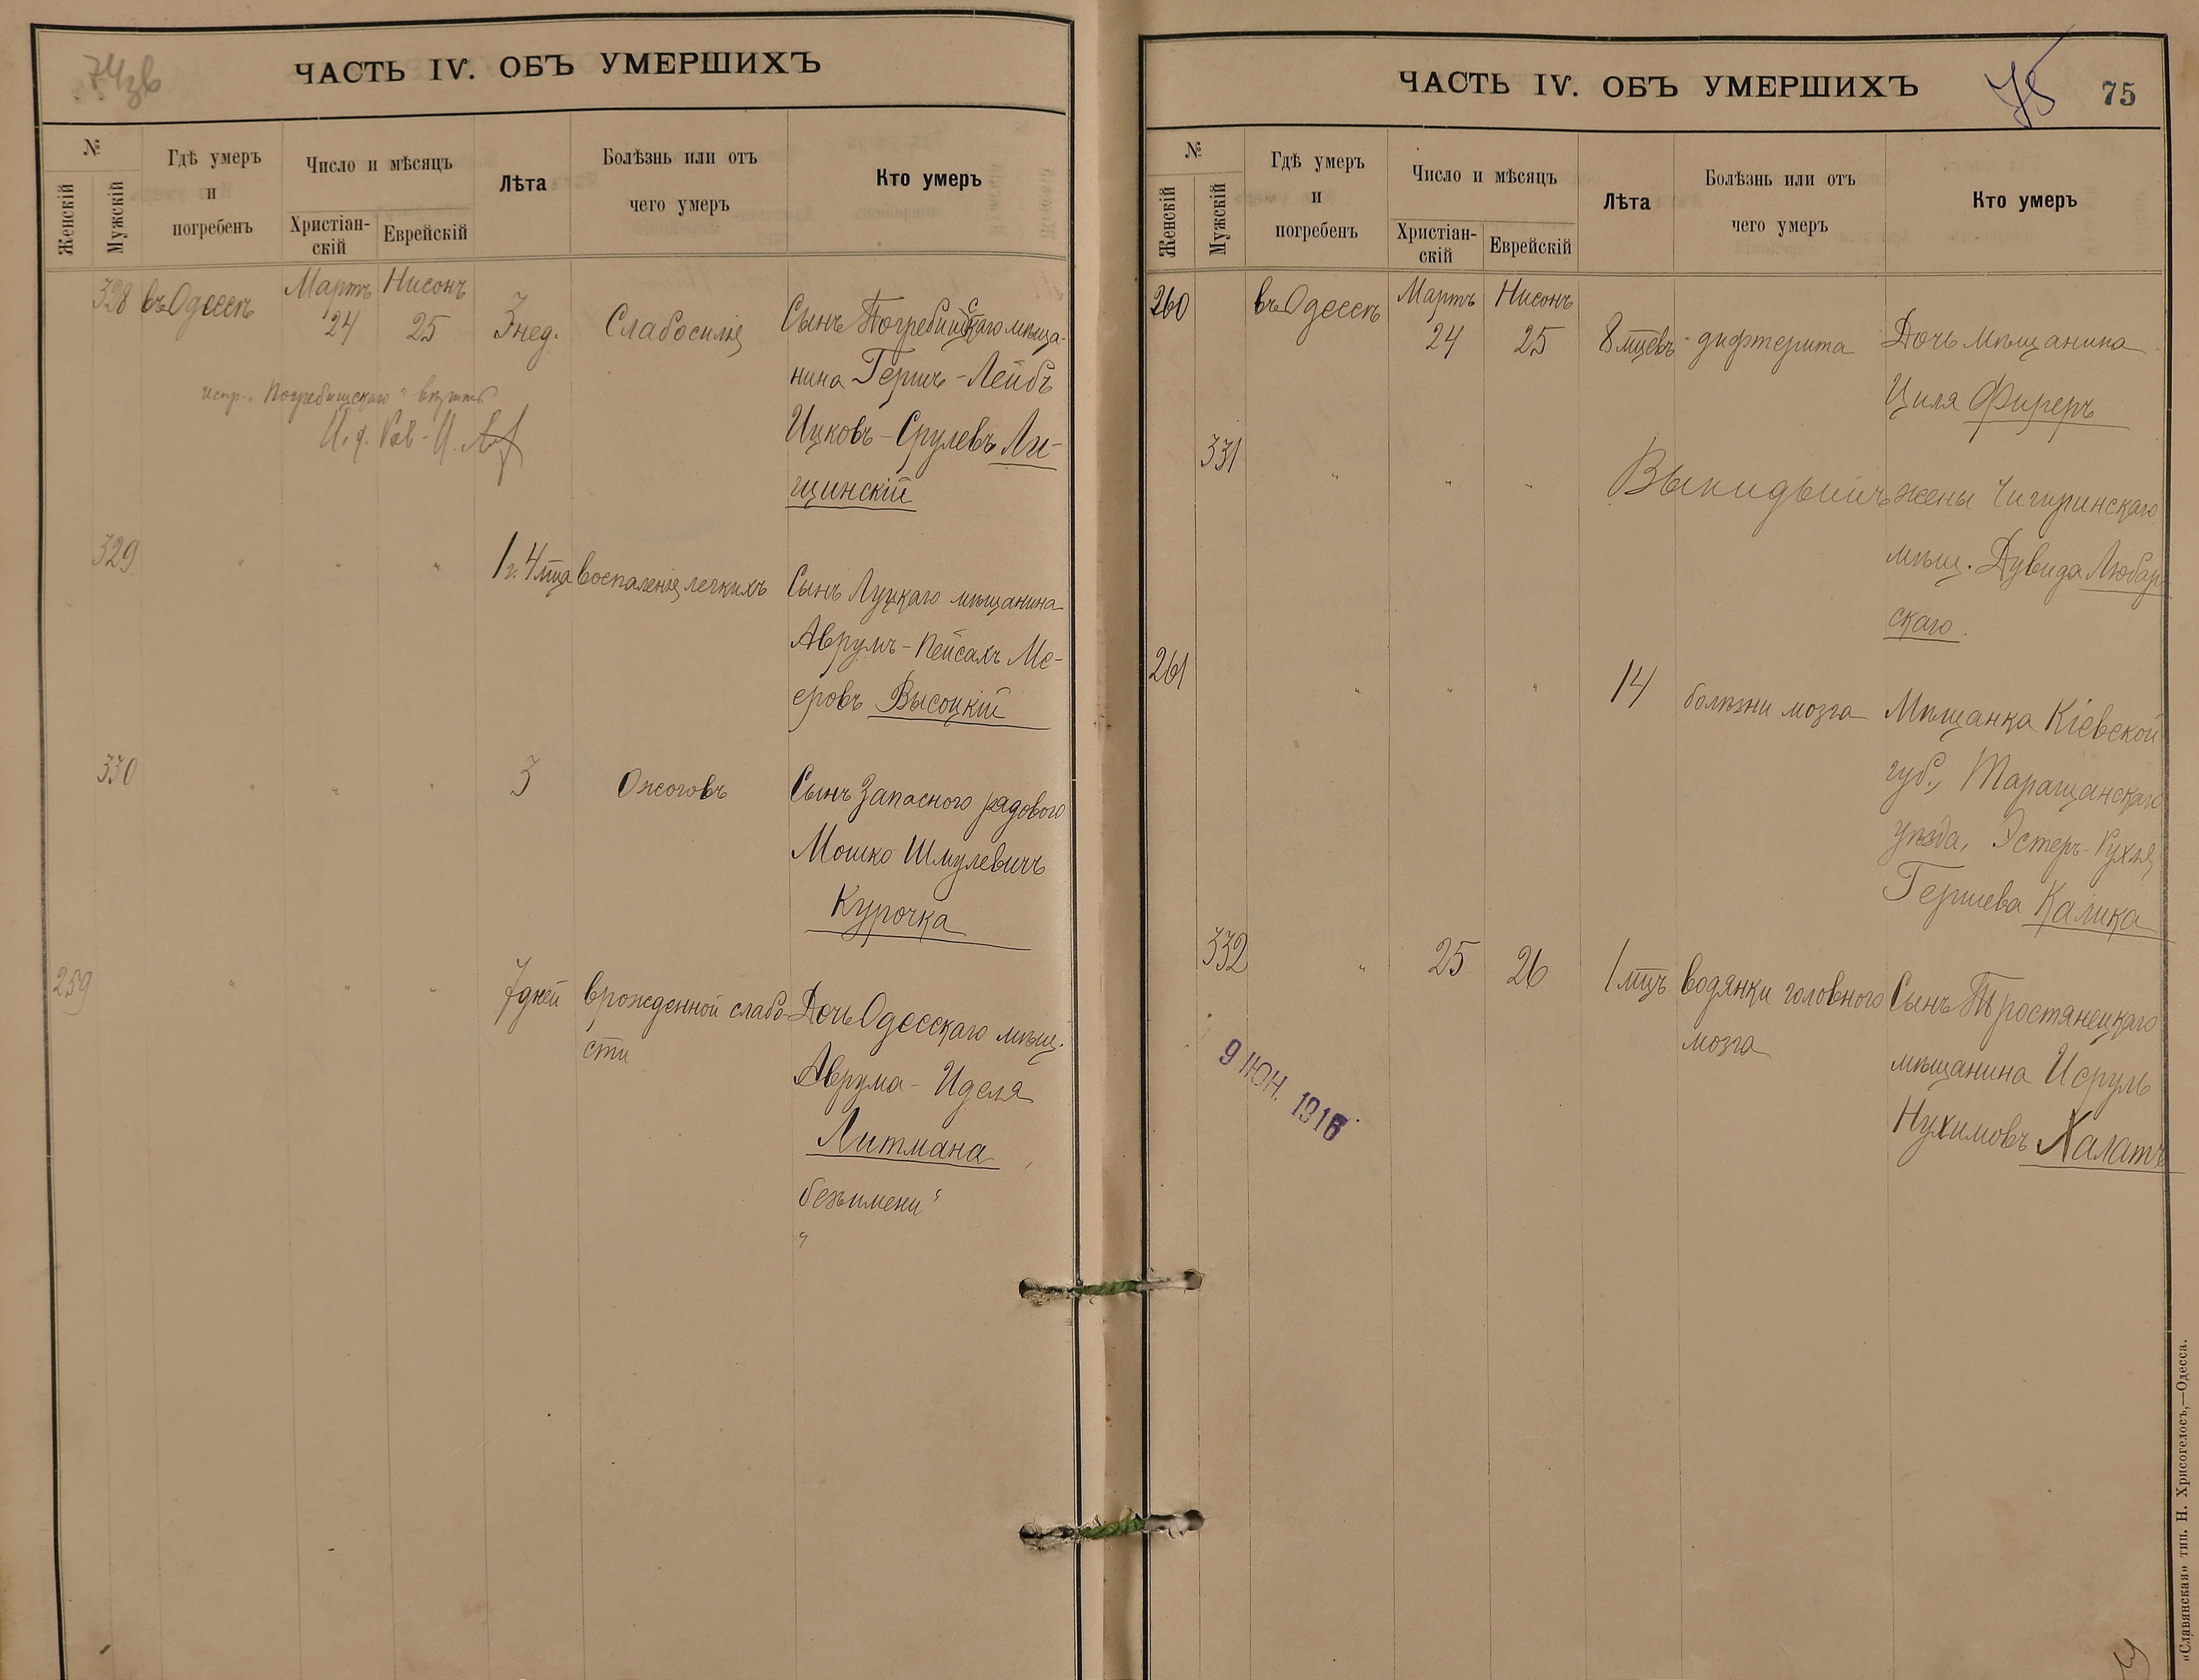 74зв
ЧАСТЬ IV. ОБЪ УМЕРШИХЪ
№
Женскій
Мужскій
Гдѣ умеръ
и
погребенъ
Число и мѣсяцъ
Христіан-
скій
Еврейскій
Лѣта
Болѣзнь или отъ
чего умеръ
Кто умеръ
328 въ Одессѣ Мартъ 24 Нисонъ 25 3 нед. Слабосилія Сынъ Погребищскаго мѣща-
нина Гершъ-Лейбъ
Ицковъ-Срулевъ Ли-
щинскій
испр. "Погребищскаго" вѣрить
И. д. Рав-
329 " " " 1 г. 4 мца воспаленія легкихъ Сынъ Луцкаго мѣщанина
Аврумъ-Пейсахъ Ме-
еровъ Высоцкій
330 " " " 3 Ожоговъ Сынъ Запасного рядового
Мошко Шмулевичъ
Курочка
259 " " " 7 дней врожденной слабо- Дочь Одесскаго мѣщ.
сти
Аврума-Иделя
Литмана
безъимени "
"
ЧАСТЬ IV. ОБЪ УМЕРШИХЪ
75
75
№
Женскій
Мужскій
Гдѣ умеръ
и
погребенъ
Число и мѣсяцъ
Христіан-
скій
Еврейскій
Лѣта
Болѣзнь или отъ
чего умеръ
Кто умеръ
260 въ Одессѣ Мартъ 24 Нисонъ 25 8 мцевъ дифтерита Дочь мѣщанина
Циля Фиреръ
331 " " " Выкидышъ жены Чигиринскаго
мѣщ. Дувида Любар-
скаго.
261 " " " 14 болѣзни мозга Мѣщанка Кіевской
губ., Таращанскаго
уѣзда, Эстеръ-Рухля
Гершева Калика
332 " 25 26 1 мцъ водянки головного Сынъ Тростянецкаго
мозга
мѣщанина Исруль
Нухимовъ Халатъ
9 ІЮН. 1915
«Славянская» тип. Н. Хрисогелосъ,—Одесса.